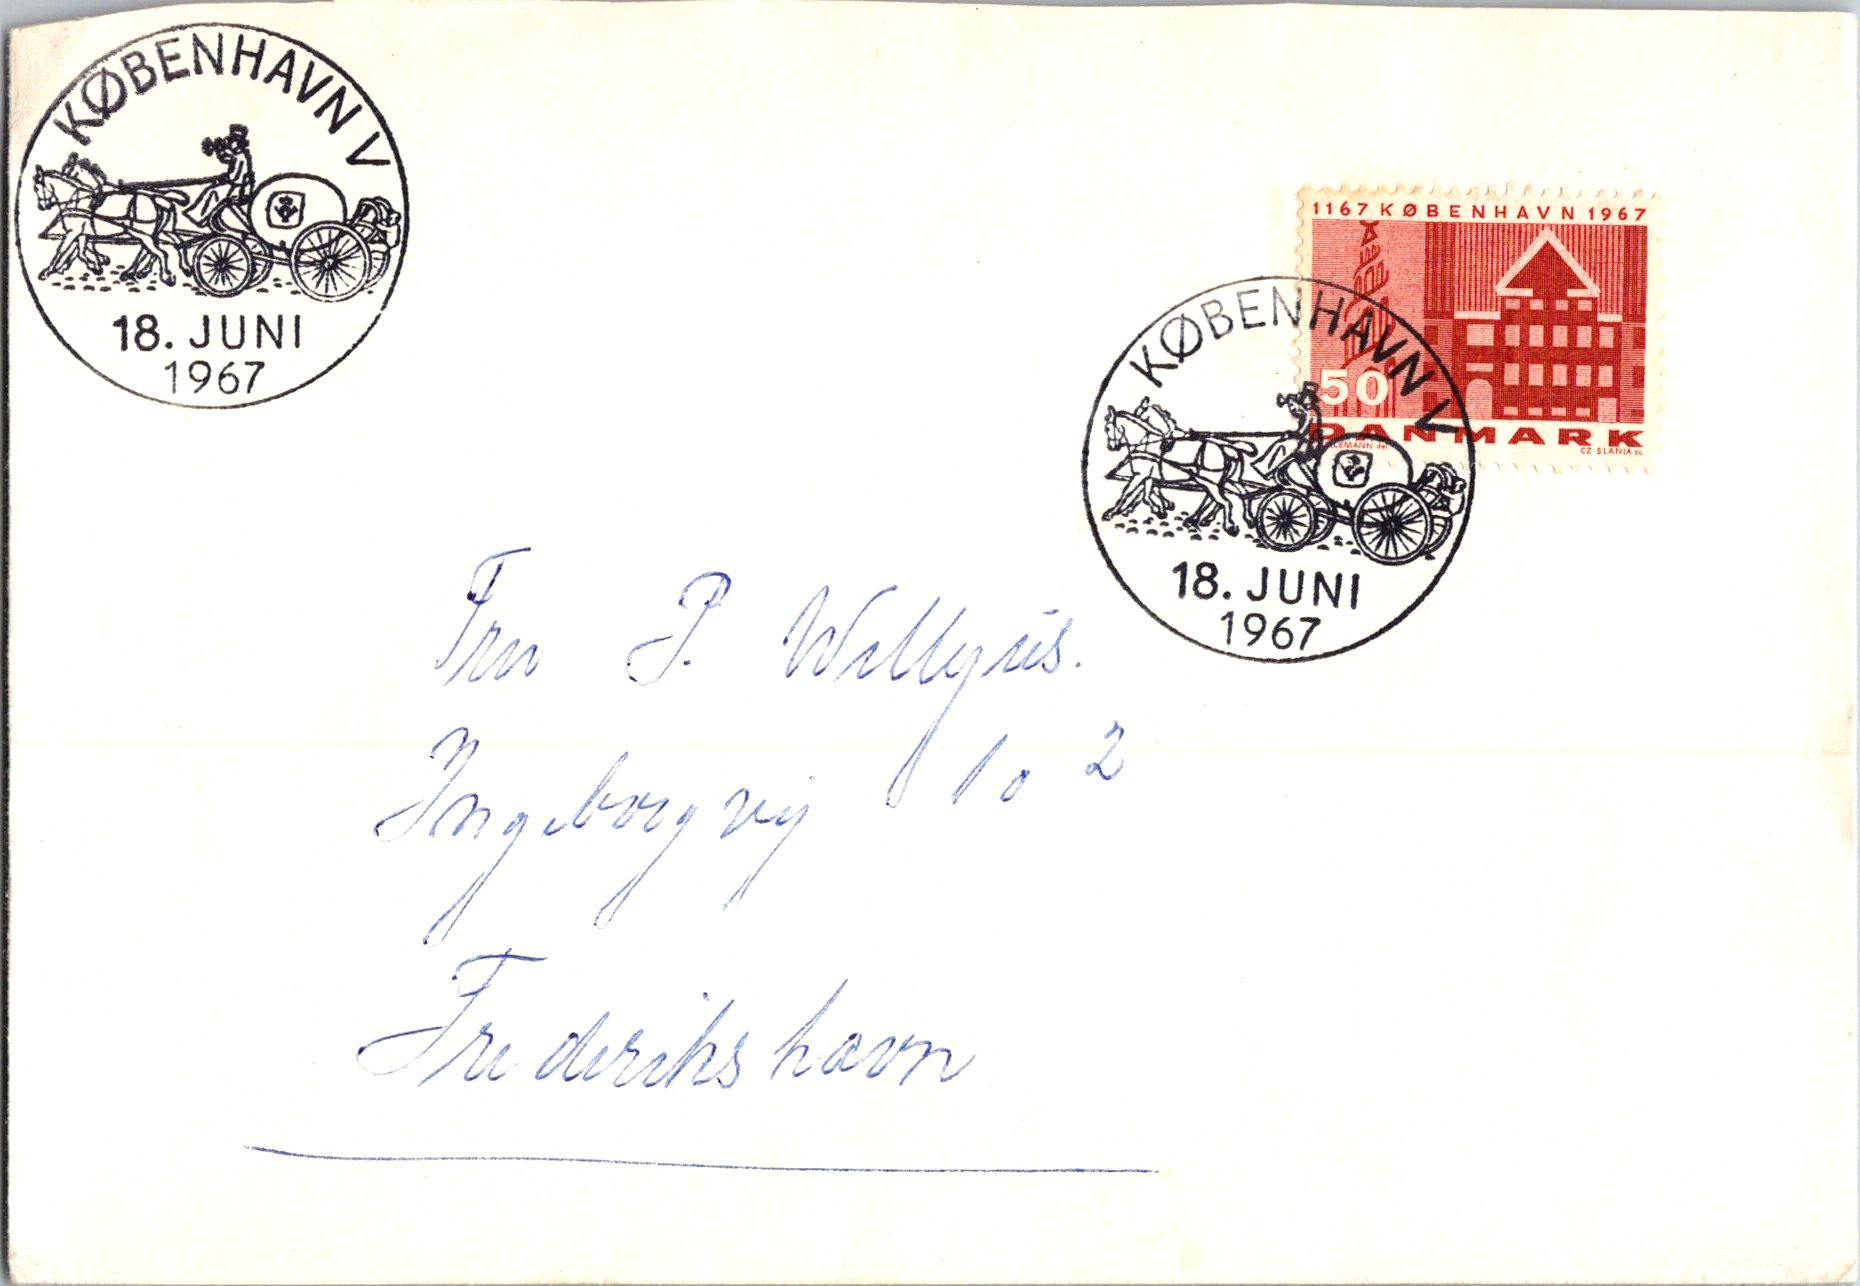 KØBENHAVN V
18. JUNI
1967
1167 KØBENHAVN 1967
50
DANMARK
CZ. SLANIA sc.
KØBENHAVN V
18. JUNI
1967
Fru P.
Ingeborgvej 10 2
Frederikshavn